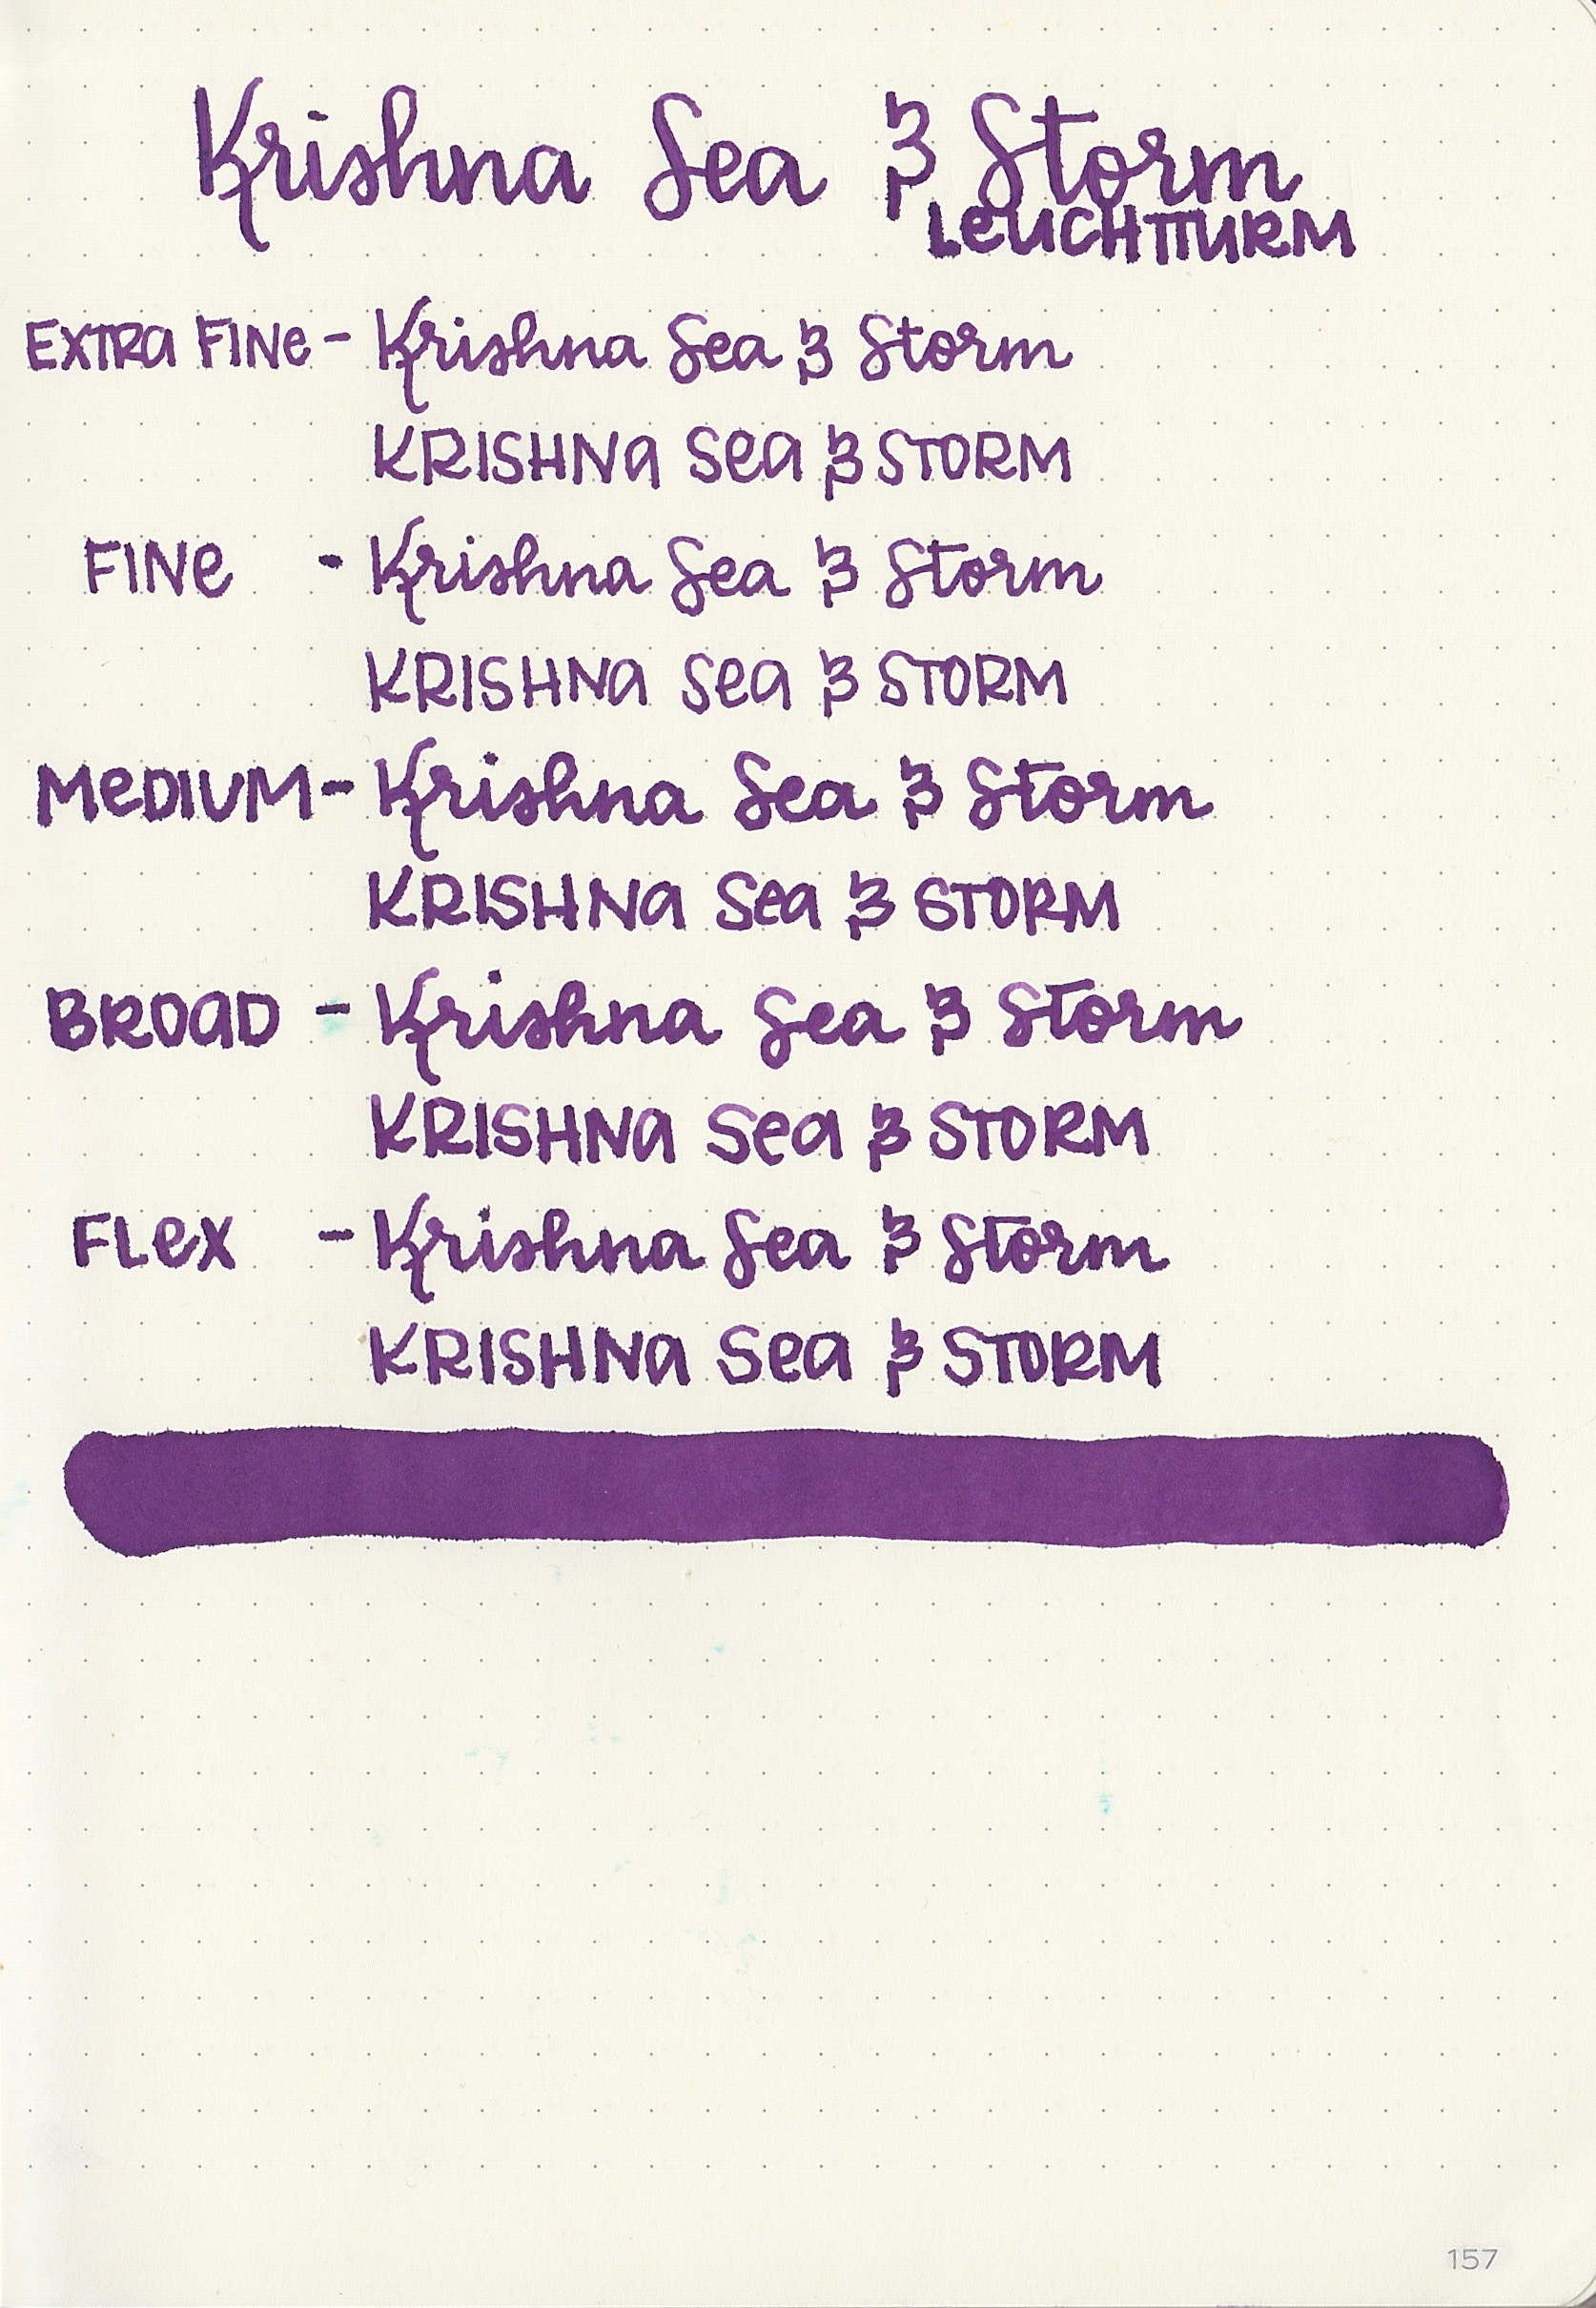 Krishna Sea & Storm
LeUCHTTURM
EXTRa FINe - Krishna Sea & Storm
KRISHNa Sea & STORM
FINe - Krishna Sea & Storm
KRISHNa Sea & STORM
MeDIUM - Krishna Sea & Storm
KRISHNa Sea & STORM
BROaD - Krishna Sea & Storm
KRISHNa Sea & STORM
FLex - Krishna Sea & Storm
KRISHNa Sea & STORM
157